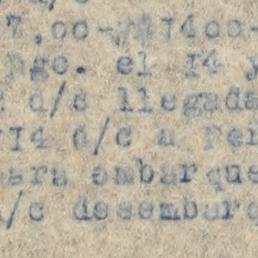 7,00- 1400-
ngo. el 14 y
d/s llegada
14 d/c a Per
para embarque
/c desembarq